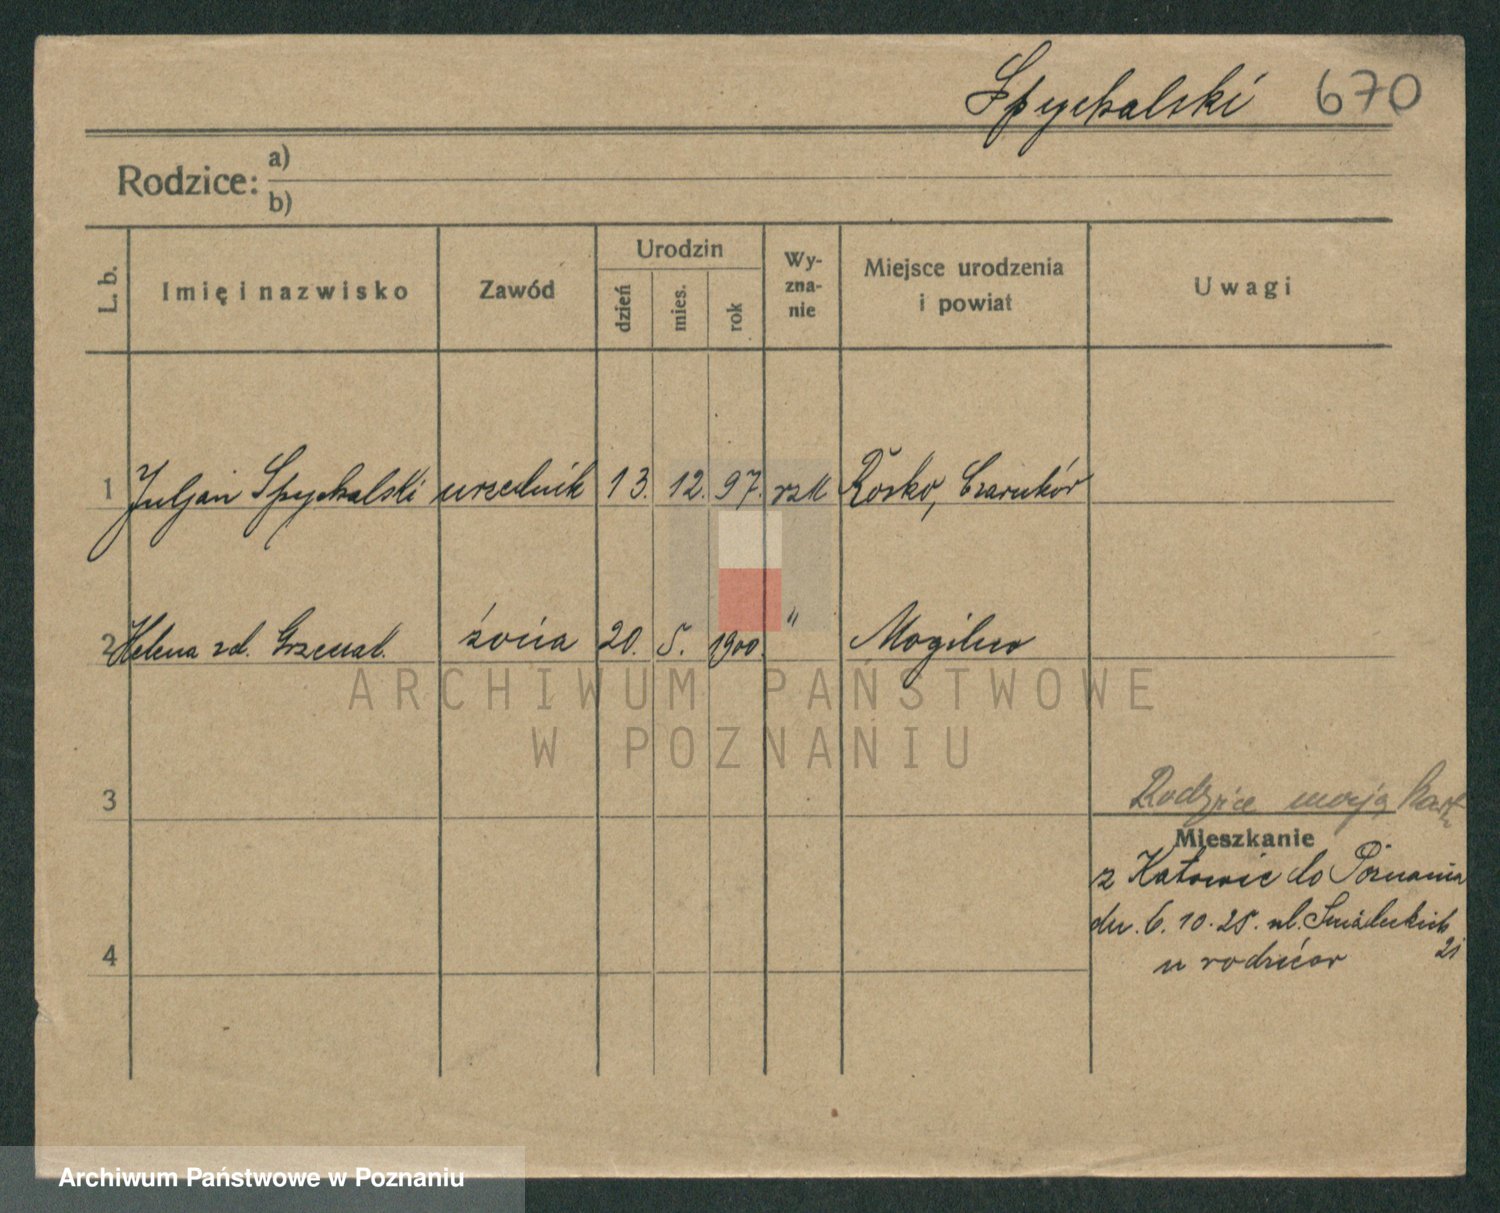 Spychalski 670
Rodzice: a)
b)
L. b.
Imię i nazwisko
Zawód
Urodzin
dzień
mies.
rok
Wy-
zna-
nie
Miejsce urodzenia
i powiat
Uwagi
1 Juljan Spychalski urzednik 13. 12. 97. rzk Rosko, Czarnków
2 Helena zd. żona 20. 5. 1900. " Mogilno
3
Rodzice mają
Mieszkanie
z Katowic do Poznania
dn. 6. 10. 25. ul. Śniadeckich
21
u rodziców
4
ARCHIWUM PAŃSTWOWE
W POZNANIU
Archiwum Państwowe w Poznaniu